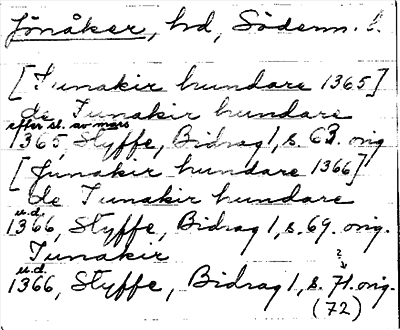 Jönåker, hd, Söderm. l.
[Junakir hundare 1365]
de Junakir hundare
efter sl. av mars
1365, Styffe, Bidrag 1, s. 63. orig
[Junakir hundare 1366]
de Junakir hundare
u.d.
1366, Styffe, Bidrag 1, s. 69. orig.
Junakir
u.d. ?
1366, Styffe, Bidrag 1, s. 71. orig.
(72)